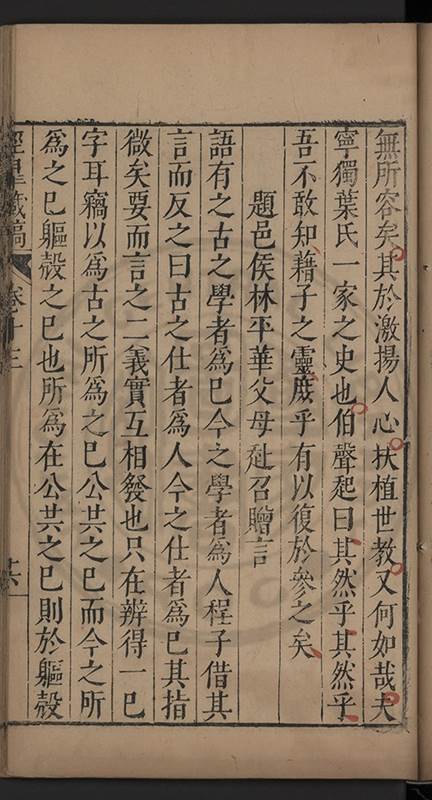 無所容矣其於激揚人心扶植世教又何如哉夫
寧獨葉氏一家之史也伯聲起曰其然乎其然乎
吾不敢知藉子之靈庶乎有以復於參之矣
題邑侯林平華父母赴召贈言
語有之古之學者爲已今之學者爲人程子借其
言而反之曰古之仕者爲人今之仕者爲已其指
微矣要而言之二義實互相發也只在辨得一已
字耳竊以爲古之所爲之已公共之已而今之所
爲之已軀殼之已也所爲在公共之已則於軀殼
涇臯藏稿
卷十三
十六